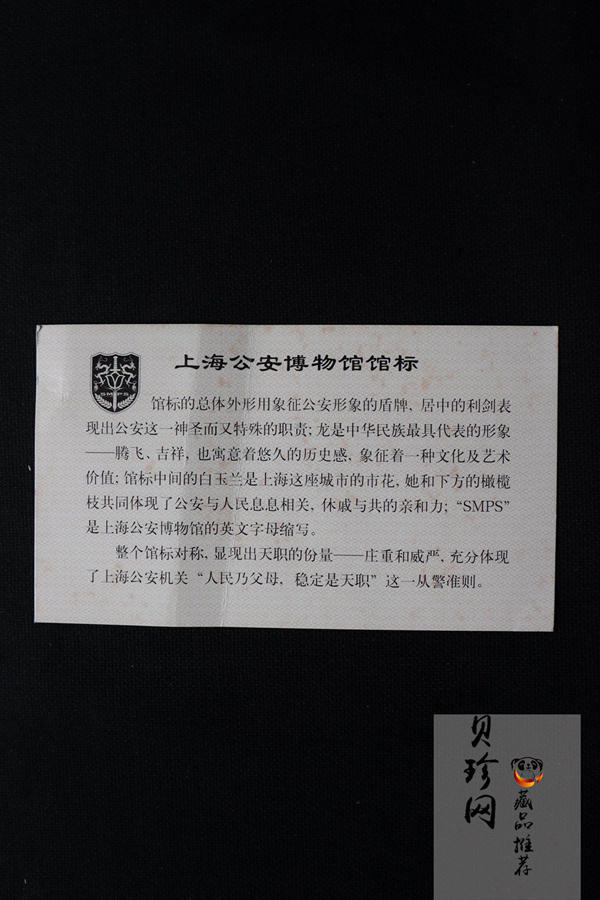 上海公安博物馆馆标
SMPS
馆标的总体外形用象征公安形象的盾牌，居中的利剑表
现出公安这一神圣而又特殊的职责；龙是中华民族最具代表的形象
——腾飞、吉祥，也寓意着悠久的历史感，象征着一种文化及艺术
价值；馆标中间的白玉兰是上海这座城市的市花，她和下方的橄榄
枝共同体现了公安与人民息息相关，休戚与共的亲和力；“SMPS”
是上海公安博物馆的英文字母缩写。
整个馆标对称，显现出天职的份量——庄重和威严，充分体现
了上海公安机关“人民乃父母，稳定是天职”这一从警准则。
贝珍网
藏品推荐